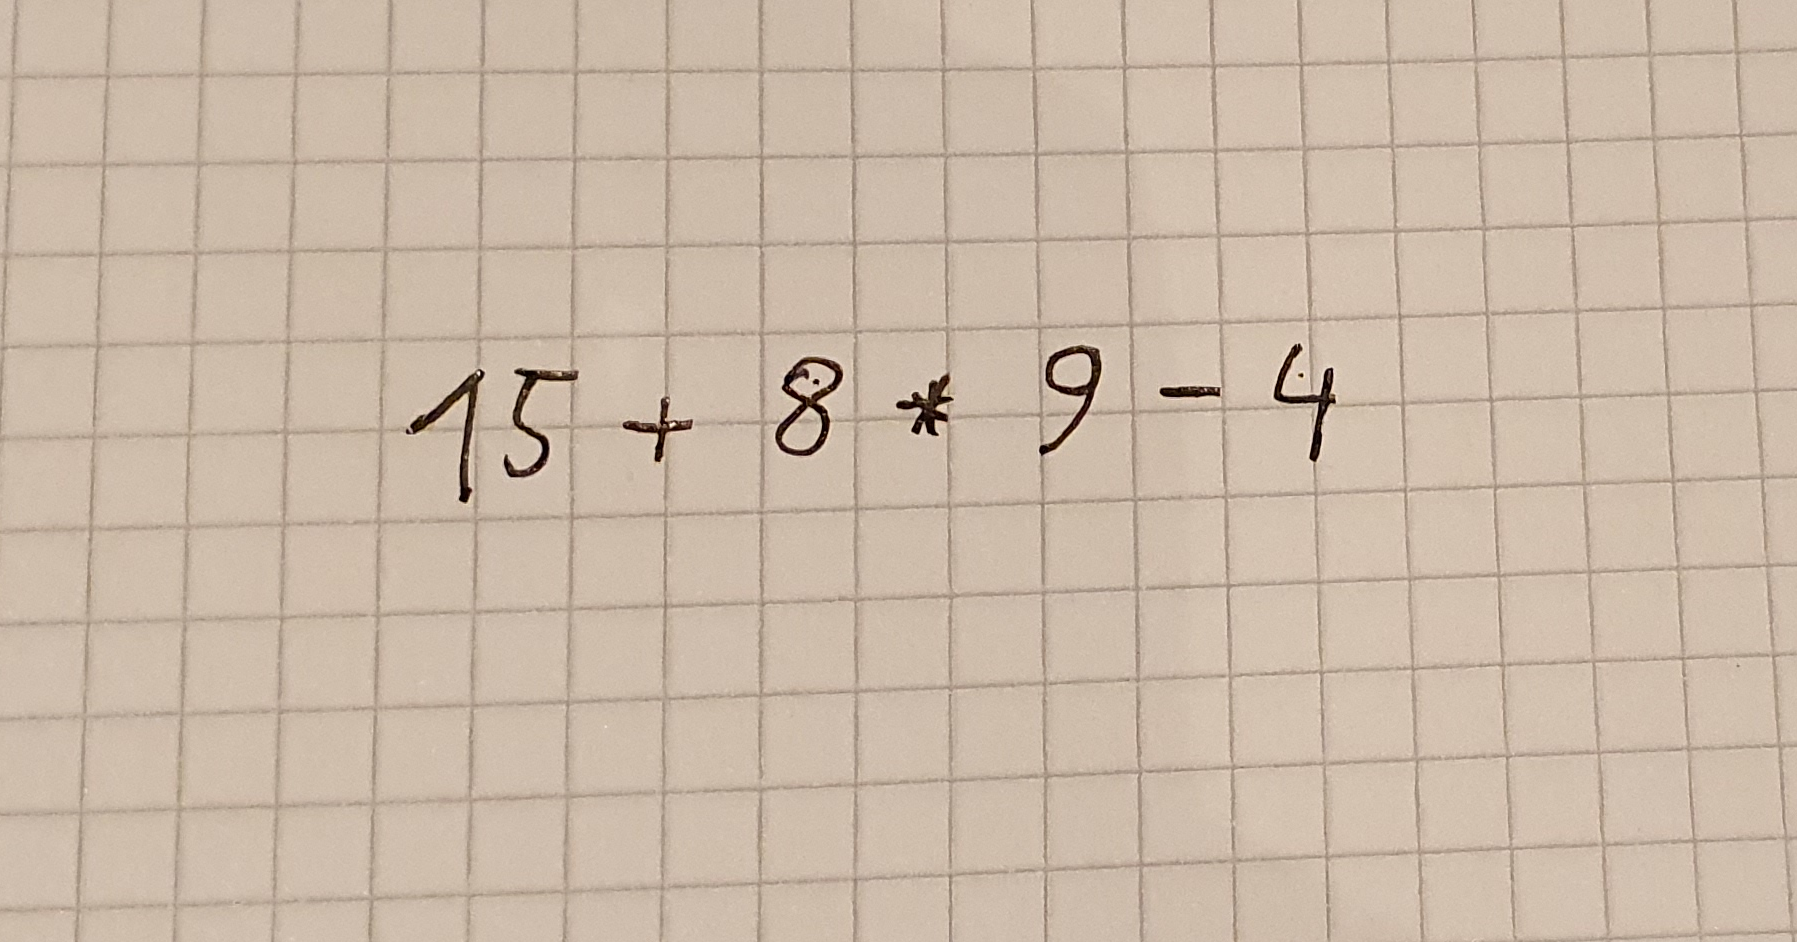 15 + 8 * 9 - 4